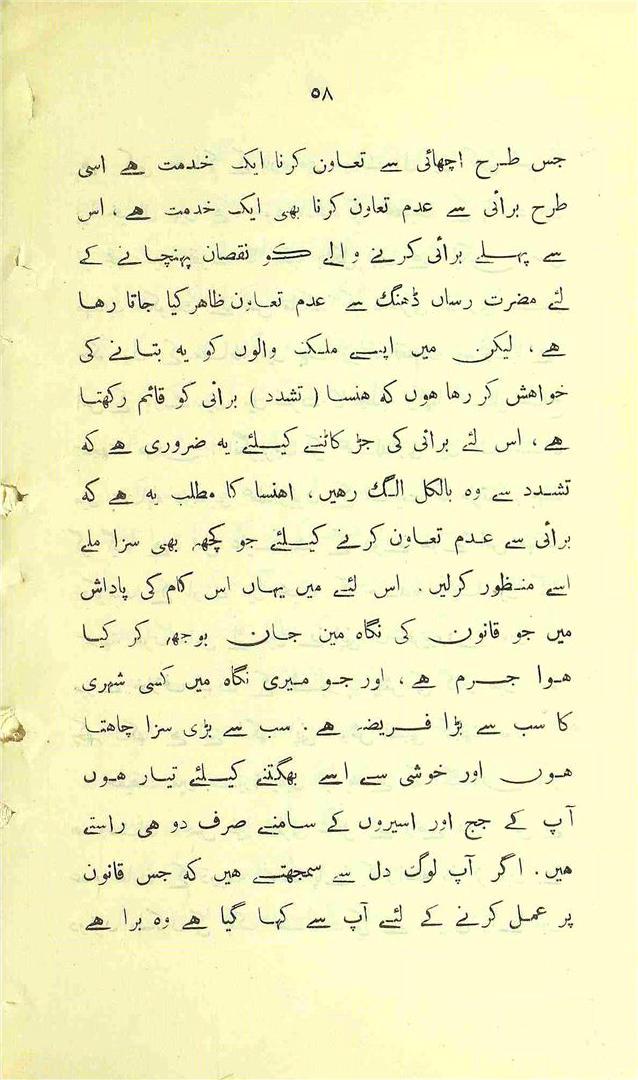 ۵۸
جس طرح اچھائی سے تعاون کرنا ایک خدمت ہے اسی
طرح برائی سے عدم تعاون کرنا بھی ایک خدمت ہے ، اس
سے پہلے برائی کرنے والے کو نقصان پہنچانے کے
لئے مضرت رساں ڈھنگ سے عدم تعاون ظاہر کیا جاتا رہا
ہے ، لیکن میں اپنے ملک والوں کو یہ بتانے کی
خواہش کر رہا ہوں کہ ہنسا ( تشدد ) برائی کو قائم رکھتا
ہے ، اس لئے برائی کی جڑ کاٹنے کیلئے یہ ضروری ہے کہ
تشدد سے وہ بالکل الگ رہیں ، اہنسا کا مطلب یہ ہے کہ
برائی سے عدم تعاون کرنے کیلئے جو کچھ بھی سزا ملے
اسے منظور کرلیں . اس لئے میں یہاں اس کام کی پاداش
میں جو قانون کی نگاہ مین جان بوجھ کر کیا
ہوا جرم ہے ، اور جو میری نگاہ میں کسی شہری
کا سب سے بڑا فریضہ ہے . سب سے بڑی سزا چاہتا
ہوں اور خوشی سے اسے بھگتنے کیلئے تیار ہوں
آپ کے جج اور اسیروں کے سامنے صرف دو ہی راستے
ہیں . اگر آپ لوگ دل سے سمجھتے ہیں کہ جس قانون
پر عمل کرنے کے لئے آپ سے کہا گیا ہے وہ برا ہے